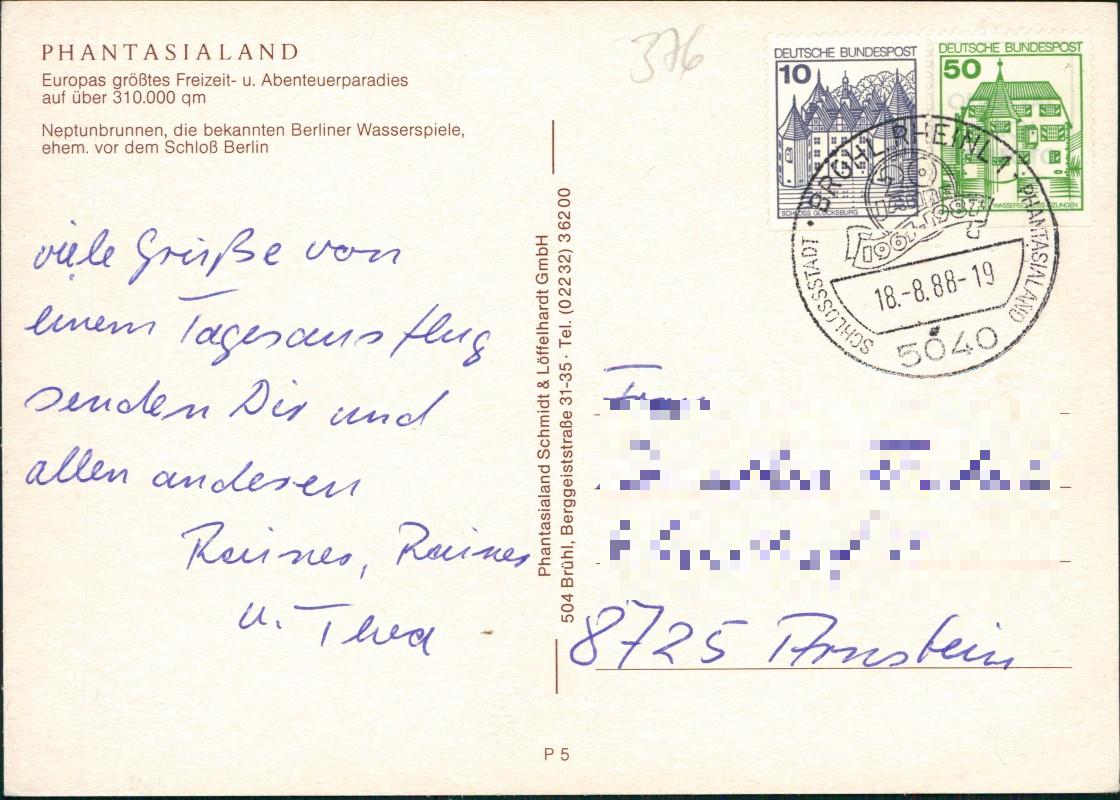 PHANTASIALAND
Europas größtes Freizeit- u. Abenteuerparadies
auf über 310.000 qm
Neptunbrunnen, die bekannten Berliner Wasserspiele,
ehem. vor dem Schloß Berlin
viele Grüße von
einem Tagesausflug
senden Dir und
allen anderen
Rainer, Rainer
u. Thea
Phantasialand Schmidt & Löffelhardt GmbH
504 Brühl, Berggeiststraße 31-35 · Tel. (02232) 36200
376
DEUTSCHE BUNDESPOST
10
SCHLOSS GLÜCKSBURG
DEUTSCHE BUNDESPOST
50
WASSERSCHLOSS INZLINGEN
BRÜHL, RHEINL 1
PHANTASIALAND
SCHLOSSSTADT
JAHRE
1967-1987
18.-8.88-19
5040
Frau
8725 Arnstein
P 5